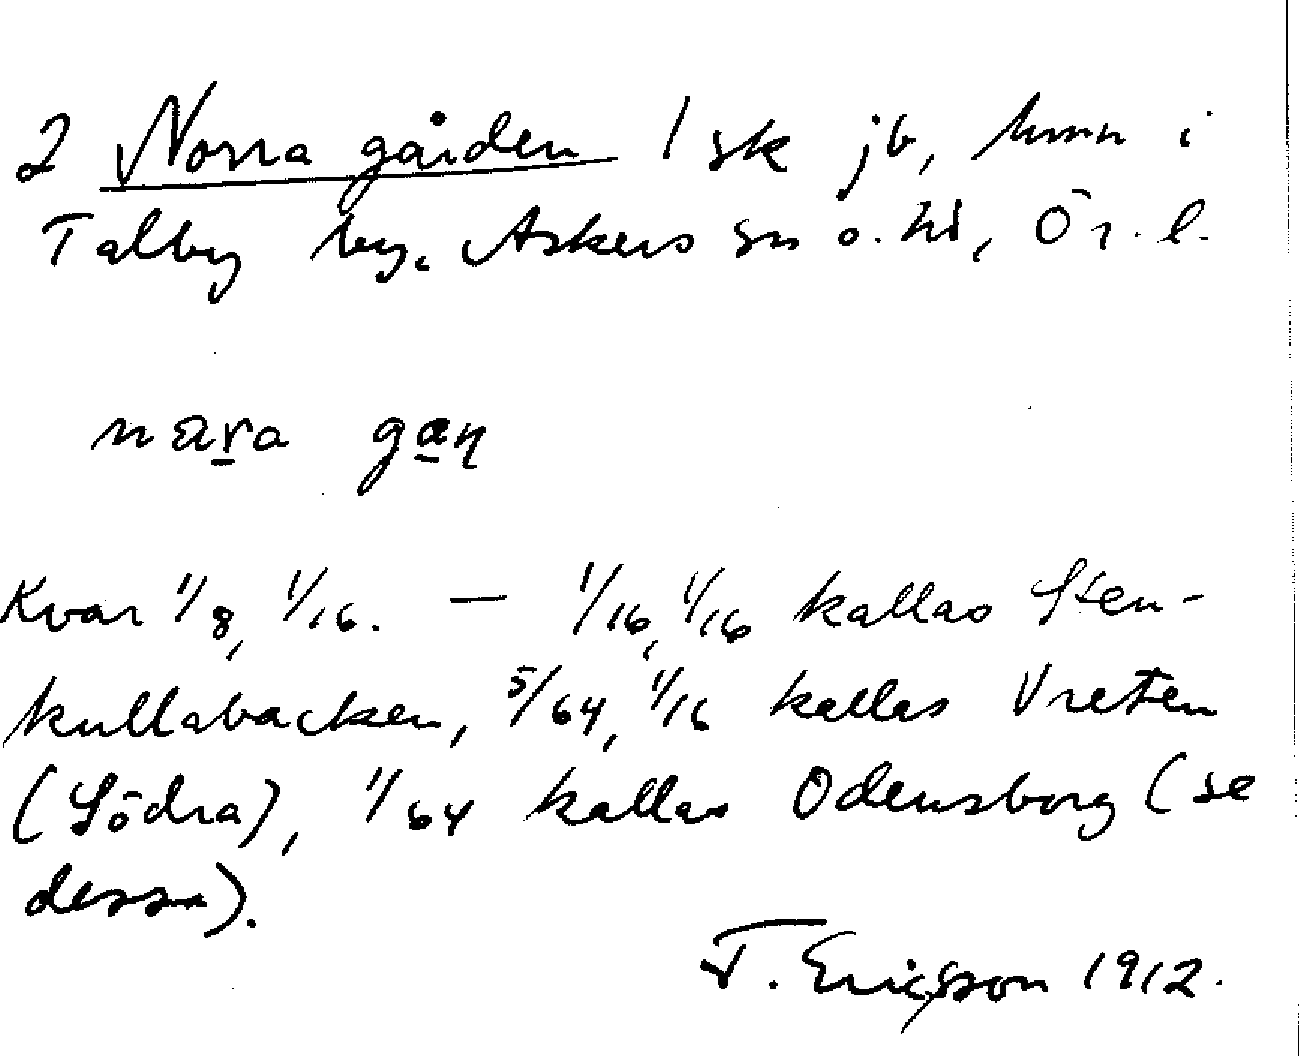 2 Norra gården 1 sk jb, hmn i
Talby by. Askers sn o. hd, Ör. l.
nara gaɳ
Kvar 1/8, 1/16. — 1/16, 1/16 kallas Sten-
kullabacken, 5/64, 1/16 kallas Vreten
(Södra), 1/64 kallas Odensborg (se
dessa).
T. Ericsson 1912.